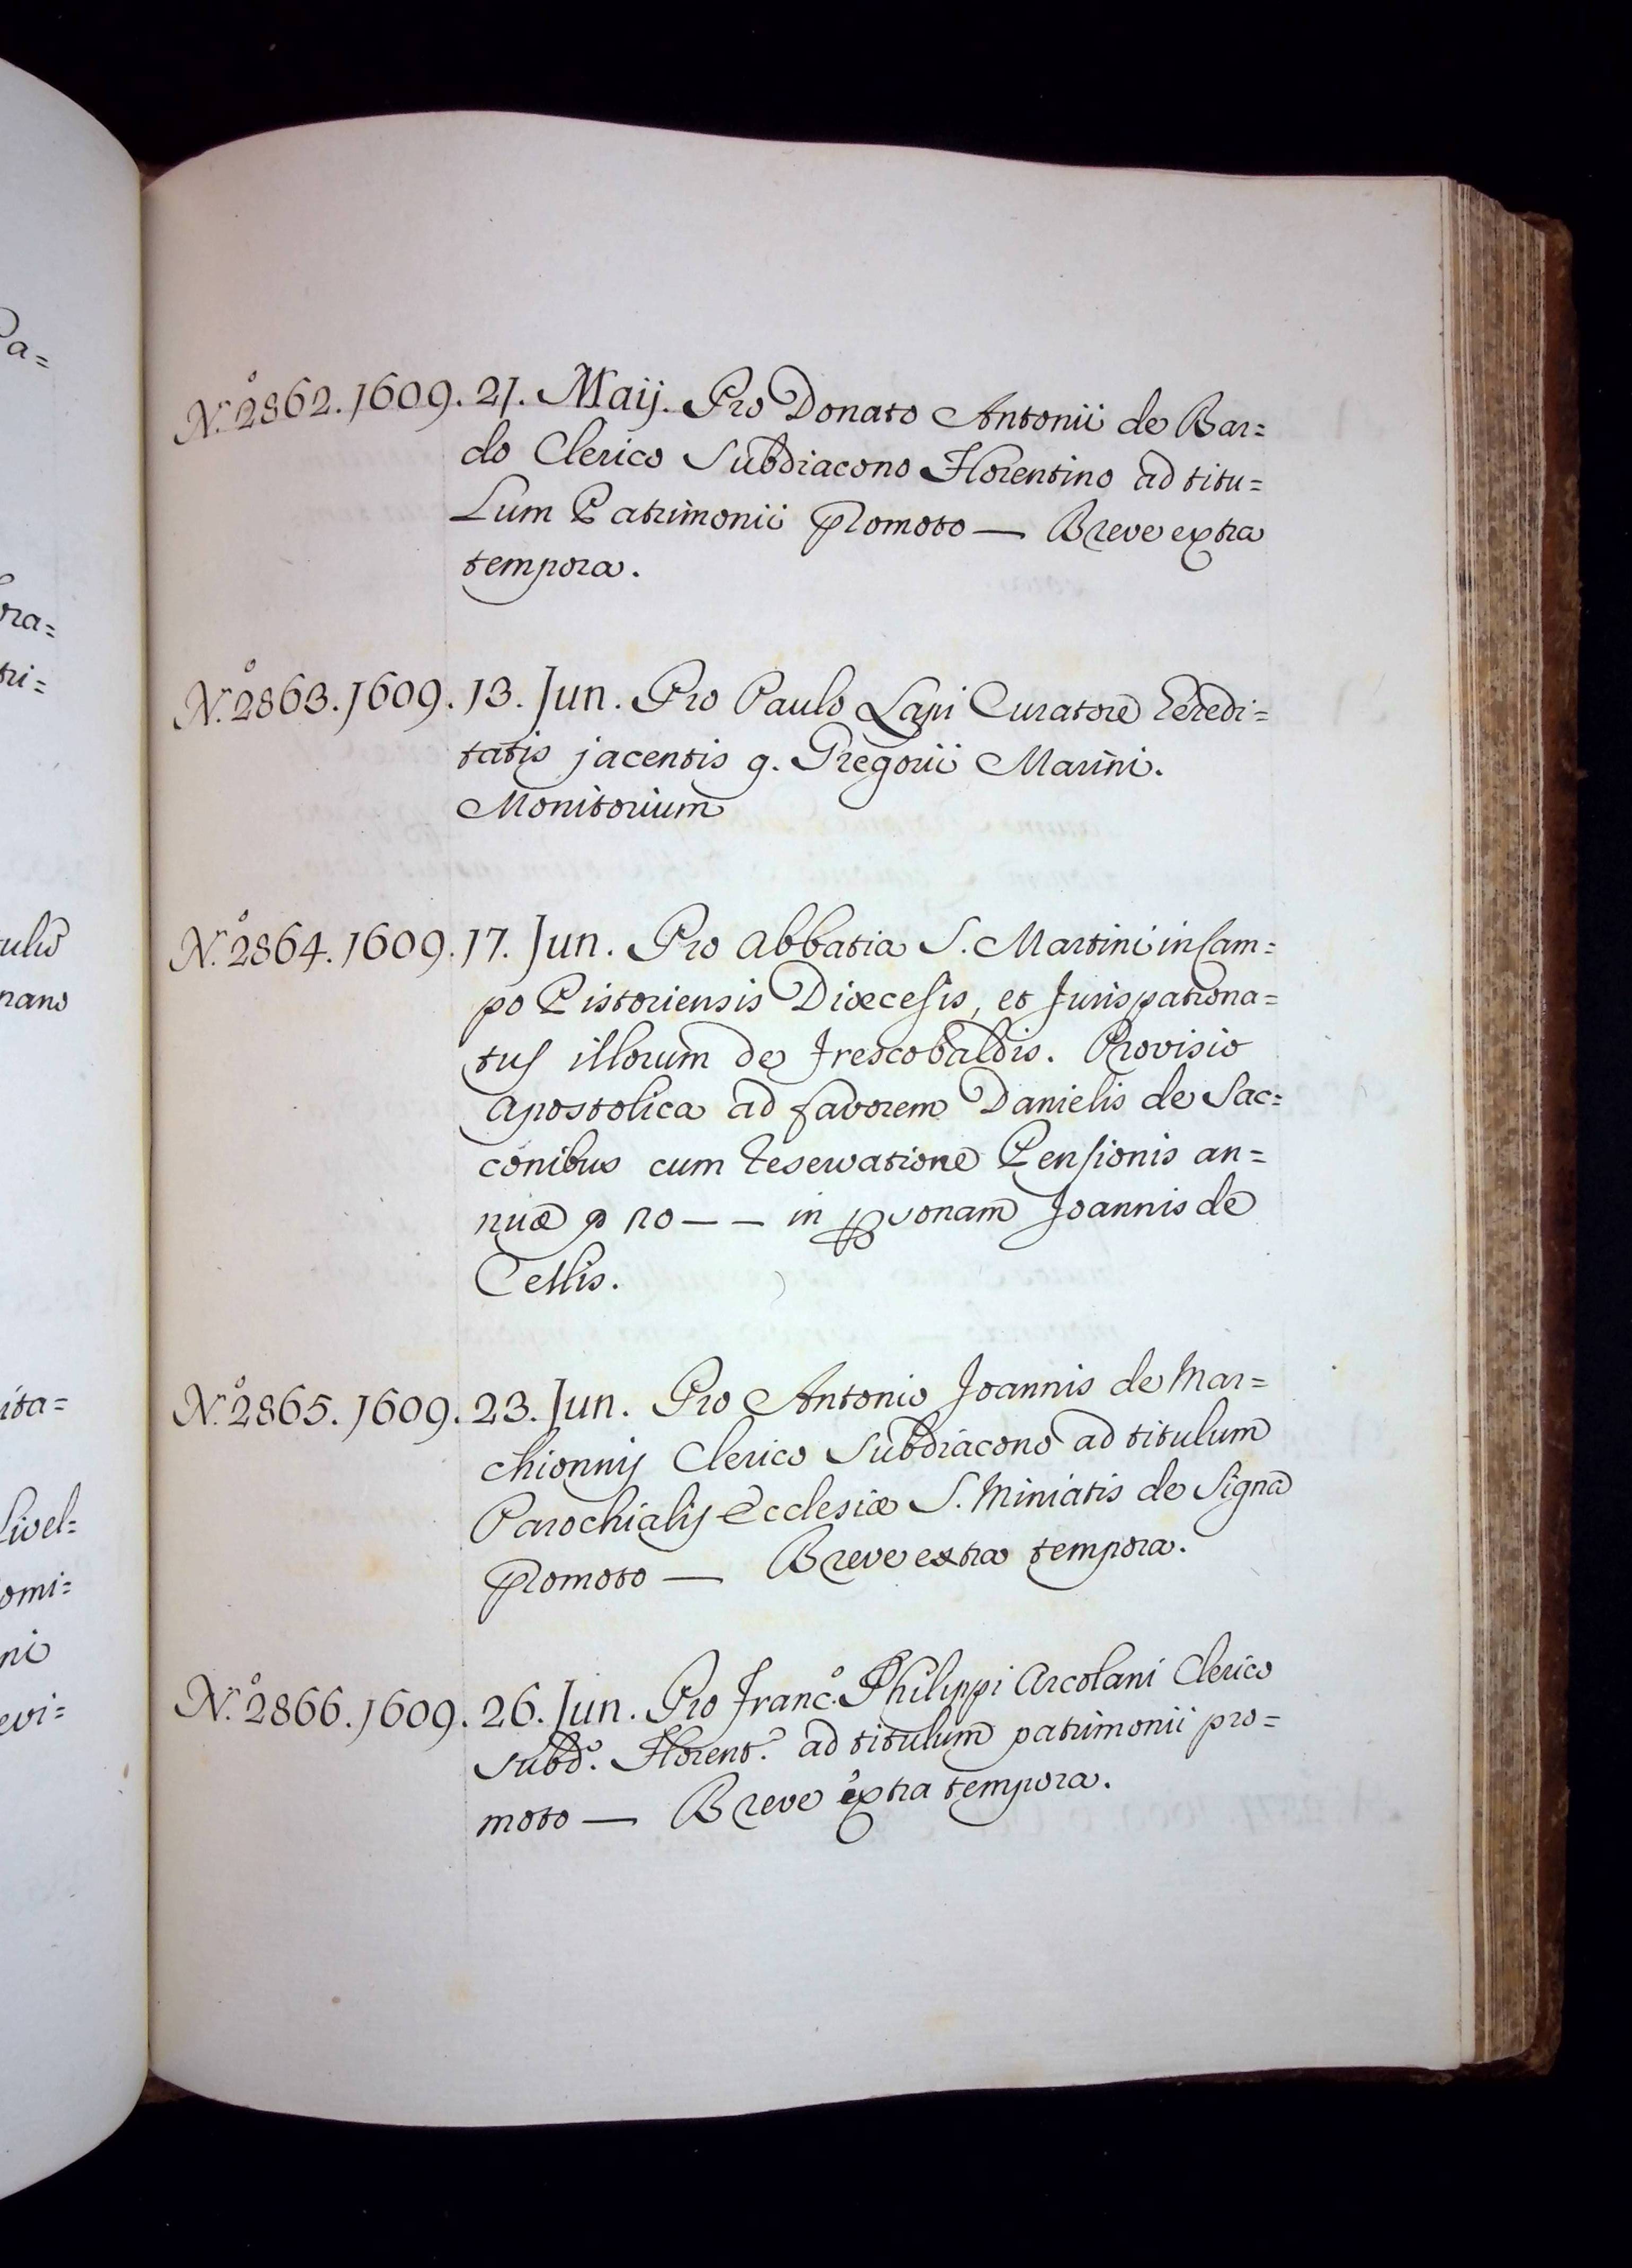 Pa=
ora=
tri=
tulis
nano
ita=
Livel=
omi=
ni
evi=
N.º 2862. 1609. 21. Maij. Pro Donato Antonii de Bar=
do Clerico Subdiacono Florentino ad titu=
Lum Patrimonii Promoto — Breve extra
tempora.
N.º 2863. 1609. 13. Jun. Pro Paulo Lapi Curatore Heredi=
tatis jacentis q. Gregorii Marini.
Monitorium
N.º 2864. 1609. 17. Jun. Pro Abbatia S. Martini in Cam=
po Pistoriensis Diœcesis, et Jurispatrona=
tus illorum de Frescobaldis. Provisio
Apostolica ad favorem Danielis de Sac=
conibus cum reservatione Pensionis an=
nuæ in Joannis de
Cellis.
N.º 2865. 1609. 23. Jun. Pro Antonio Joannis de Mar=
chionnis Clerico Subdiacono ad titulum
Parochialis Ecclesiæ S. Miniatis de Signa
Promoto — Breve extra tempora.
N.º 2866. 1609. 26. Jun. Pro Franc.º Philippi Arcolani Clerico
Subd.º Florent.º ad titulum patrimonii pro=
moto — Breve extra tempora.